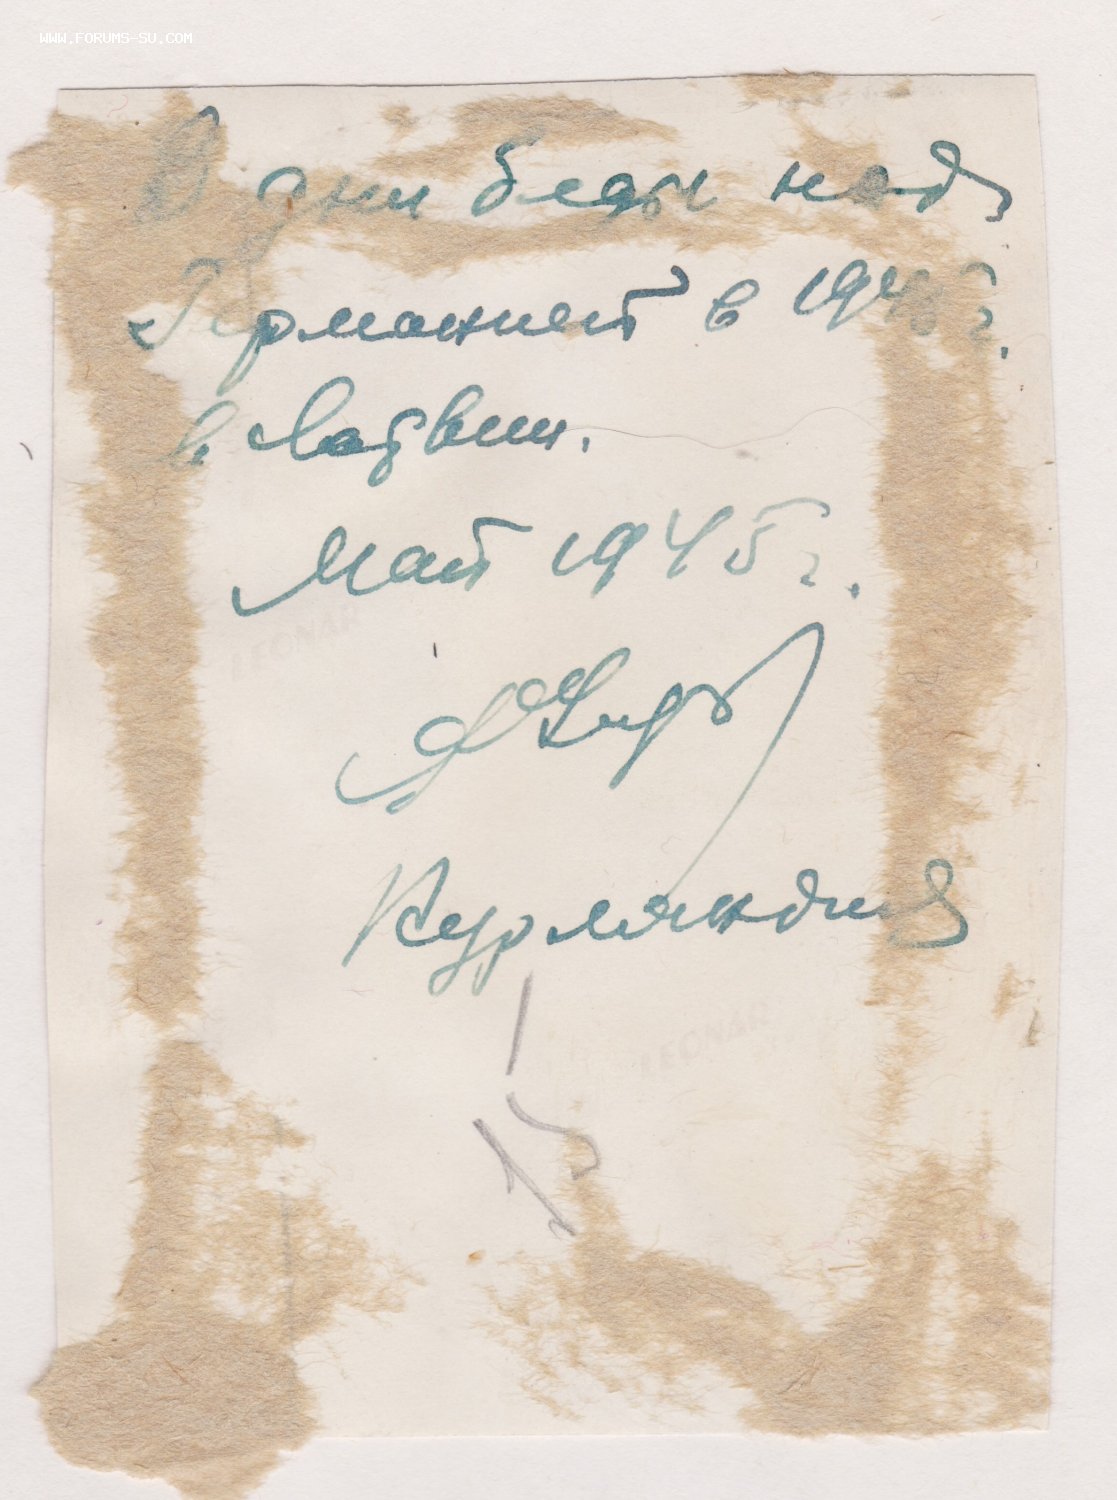 WWW.FORUMS-SU.COM
В дни беды над
Германией в 1945 г.
в Латвии.
Май 1945 г.
Курляндия
LEONAR
LEONAR